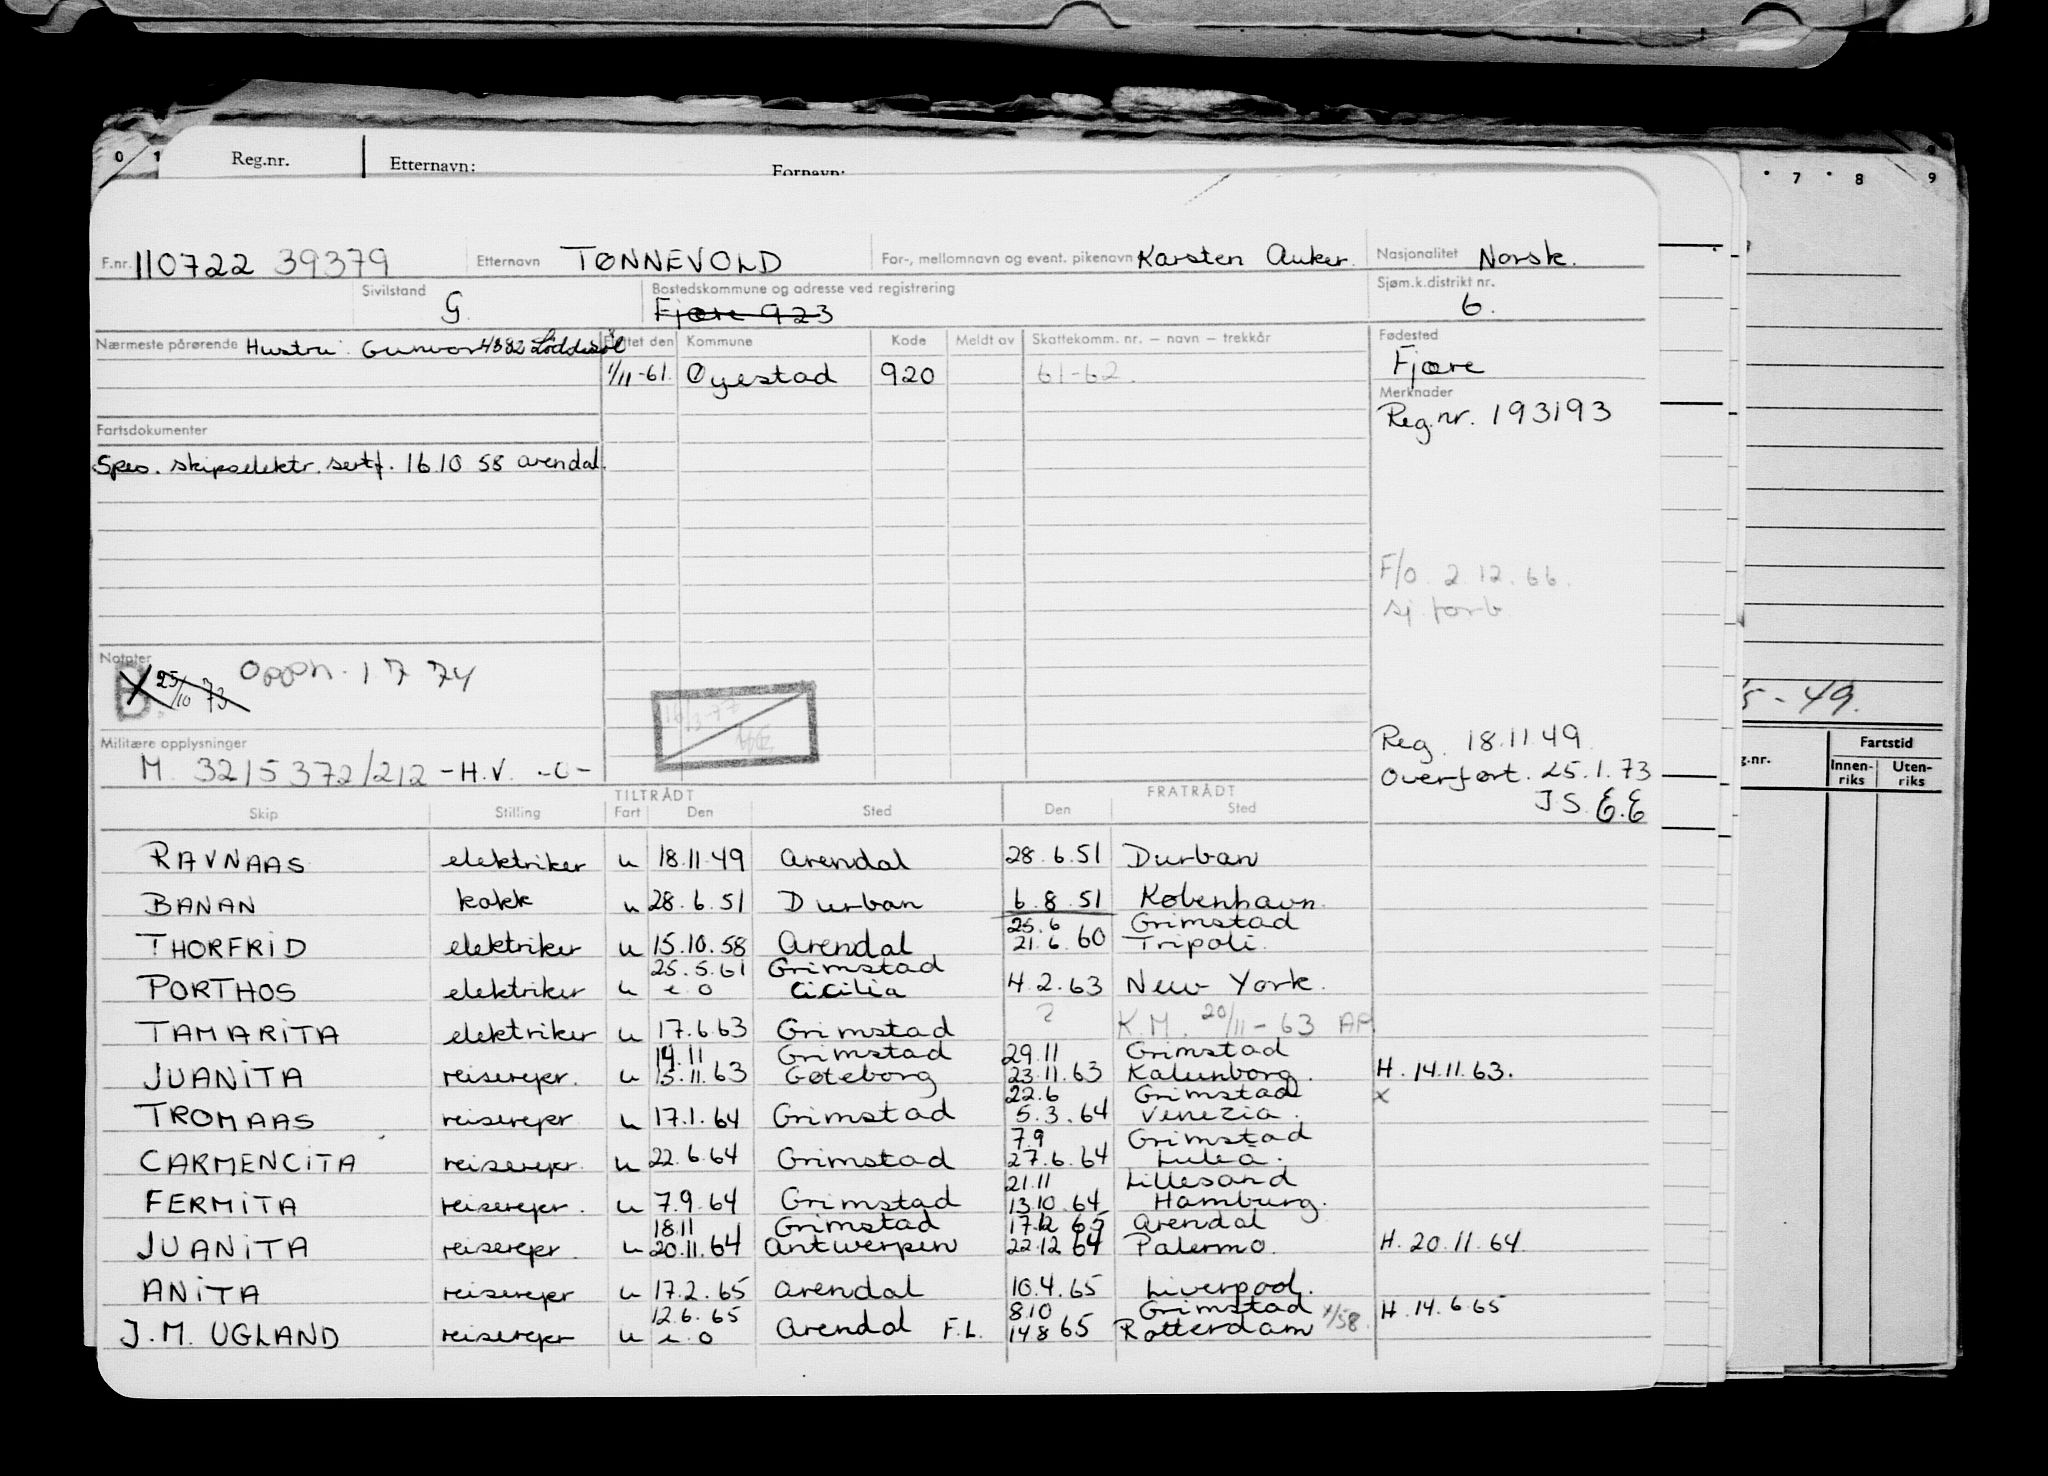 0 1
Reg.nr. Etternavn: Fornavn:
7 8 9
F.nr. 110722 39379 Etternavn TØNNEVOLD For-, mellomnavn og event. pikenavn Karsten Anker. Nasjonalitet Norsk.
Sivilstand G. Bostedskommune og adresse ved registrering Fjære 923 Sjøm.k.distrikt nr. 6.
Nærmeste pårørende Hustru Gunvor 4882 Løddesøl Flyttet den Kommune Kode Meldt av Skattekomm. nr. – navn – trekkår Fødested
1/11-61 Øyestad 920 61-62. Fjære
Merknader
Reg.nr. 193193
Fartsdokumenter
Spes. skipselektr. sertf. 16.10 58 Arendal.
F/o. 2.12.66.
sj. forb.
Notater
B. 25/10 73 Opph. 1 7 74
5-49.
Militære opplysninger
M. 3215372/212 -H.V. -0-
Reg. 18.11.49
Overført. 25.1.73
J.S. E.E
g.nr. Fartstid
Innen-riks Uten-riks
TILTRÅDT FRATRÅDT
Skip Stilling Fart Den Sted Den Sted
RAVNAAS elektriker u 18.11.49 Arendal 28.6.51 Durban
BANAN kokk u 28.6.51 Durban 6.8.51 København.
25.6 Grimstad
THORFRID elektriker u 15.10.58 Arendal 21.6.60 Tripoli.
25.5.61 Grimstad
PORTHOS elektriker u e.o Cicilia 4.2.63 New York.
TAMARITA elektriker u 17.6.63 Grimstad ? K.M. 20/11-63 AP
14.11 Grimstad 29.11 Grimstad
JUANITA reiserepr. u 15.11.63 Gøteborg 23.11.63 Kalunborg. H. 14.11.63.
22.6 Grimstad x
TROMAAS reiserepr u 17.1.64 Grimstad 5.3.64 Venezia.
7.9 Grimstad
CARMENCITA reiserepr. u 22.6.64 Grimstad 27.6.64 Luleå.
21.11 Lillesand
FERMITA reiserepr. u 7.9.64 Grimstad 13.10.64 Hamburg.
18.11 Grimstad 17.12 65 Arendal
JUANITA reiserepr. u 20.11.64 Antwerpen 22.12 64 Palermo. H. 20.11.64.
ANITA reiserepr u 17.2.65 Arendal 10.4.65 Liverpool.
12.6.65 8.10 Grimstad H. 14.6.65
J.M. UGLAND reiserepr u e.o Arendal F.L. 14 8 65 Rotterdam